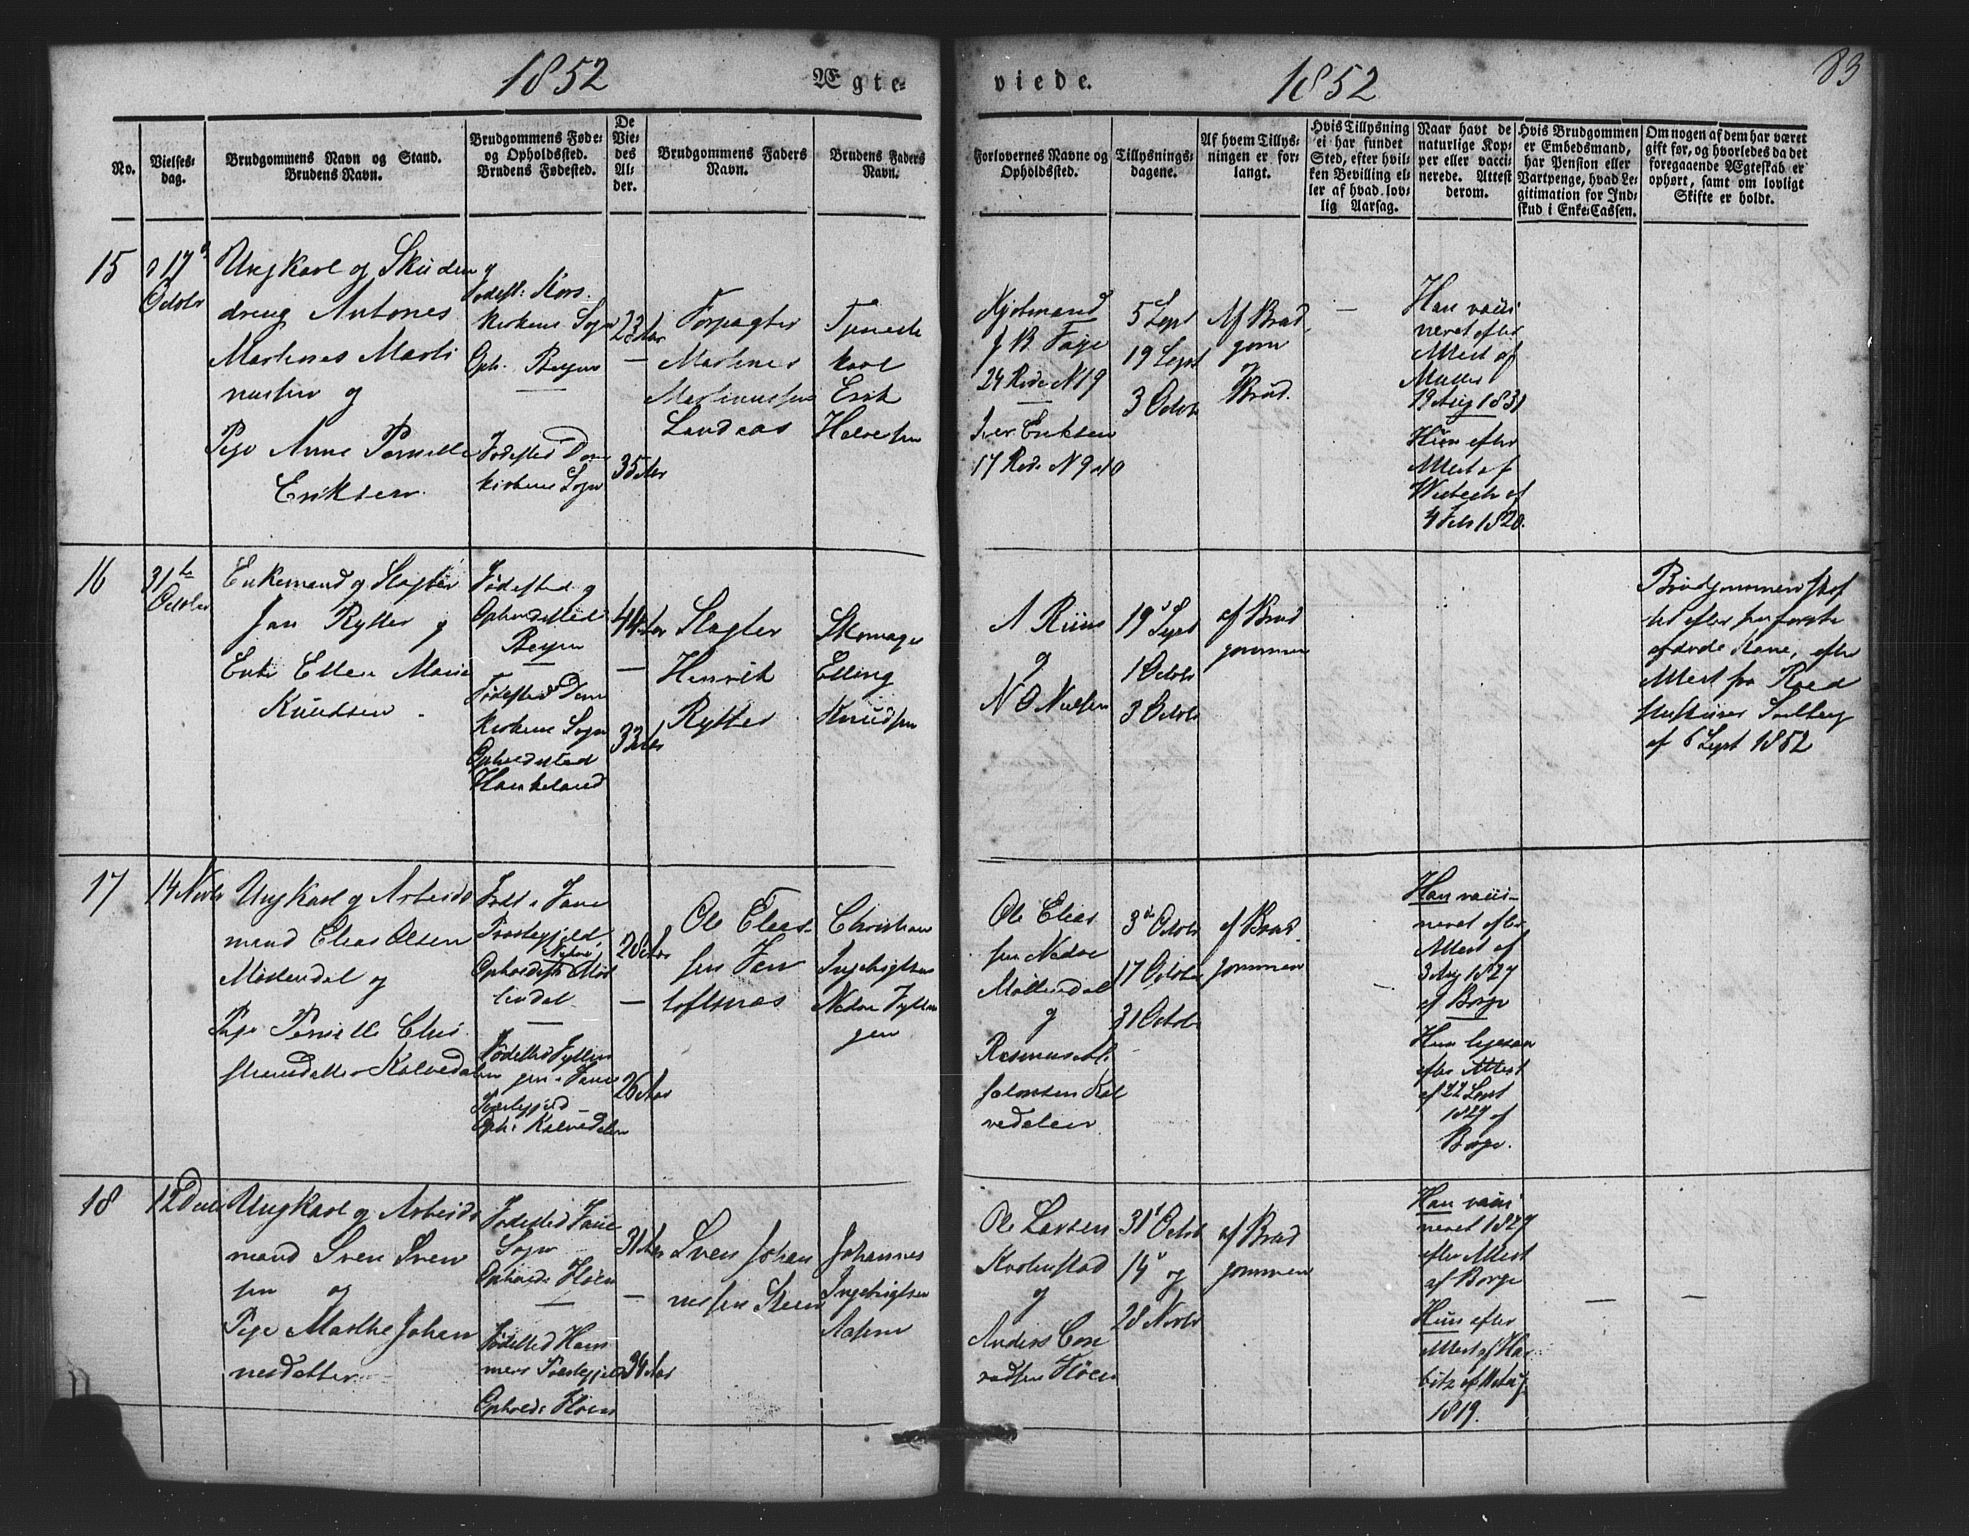 1852
Ægte-
viede.
1852
83
No.
Vielses-
dag.
Brudgommens Navn og Stand.
Brudens Navn.
Brudgommens Føde-
og Opholdssted.
Brudens Fødested.
De
Vie-
des
Al-
der.
Brudgommens Faders
Navn.
Brudens Faders
Navn.
Forlovernes Navne og
Opholdssted.
Tillysnings-
dagene.
Af hvem Tillys-
ningen er for-
langt.
Hvis Tillysning
ei har fundet
Sted, efter hvil-
ken Bevilling el-
ler af hvad lov-
lig Aarsag.
Naar havt de
naturlige Kop-
per eller vacci-
nerede. Attest
derom.
Hvis Brudgommen
er Embedsmand,
har Pension eller
Vartpenge, hvad Le-
gitimation for Ind-
skud i Enke-Cassen.
Om nogen af dem har været
gift før, og hvorledes da det
foregaaende Ægteskab er
ophørt, samt om lovligt
Skifte er holdt.
15
17
Octobr
Ungkarl og
dreng Antones
Martines Marti
og
Pige Anne Pernille
Eriksen
Kors
kirkens Sogn
Oph. Bergen
Fødested Dom
kirkens Sogn
23 Aar
35 Aar
Forpagter
Martines
Martinussen
Landaas
Tjeneste
karl
Erik
Halvorsen
24 Rode N 19
Iver Eriksen
17 Rode N 9
5 Sept
19 Sept
3 Octobr
Af Brud
gom
og
Brud.
Han vacci
neret efter
Attest af
19 Aug 1831
Hun efter
Attest af
4 Feb 1820.
16
31te
Octobr
Enkemand og Slagter
Jan Rytter og
Enke Ellen Marie
Knudsen
Fødested og
Opholdssted
Bergen
Fødested Dom
kirkens Sogn
Opholdssted
Haukeland
44 Aar
33 Aar
Slagter
Henrik
Rytter
Skomager
Elling
Knudsen
og
N O Nielsen
19 Sept
1 Octobr
3 Octobr
af Brud
gommen
Brudgommen skif
tet efter sin første
afdøde Kone, efter
Attest fra
af 6 Sept 1852
17
14 Novbr
Ungkarl og Arbeids
mand Elias Olsen
Møllendal og
Pige Pernille Chri
stiansdatter Kalvedalen
Født i Fane
Præstegjeld
Møl
lendal
Fødested Fyllin
gen i Fane
Præstegjeld
Oph: Kalvedalen
28 Aar
26 Aar
Ole Elias
sen
Christian
Ingebrigtsen
Nedre Fyllin
gen
Ole Elias
sen Nedre
Møllendal
og
Rasmus
Kal
vedalen
3 Octobr
17 Octobr
31 Octobr
af Brud
gommen
Han vacci-
neret efter
Attest af
3 Aug 1827
af Borge
Hun ligesaa
efter Attest
af 22 Sept
1827 af
Borge.
18
12 Decbr
Ungkarl og Arbeids
mand Sven Sven
sen og
Pige Marthe Johan
nesdatter
Fødested Fane
Sogn
Opholds Fløen
Fødested Ham
mers Præstegjeld
Opholds Fløen
31 Aar
34 Aar
Sven Johan
nessen Steen
Johannes
Ingebrigtsen
Ole Larsen
og
Anders Con
radsen Fløen
31 Octobr
14 og
28 Novbr
af Brud
gommen
Han vacci
neret 1827
efter Attest
af Borge
Hun efter
Attest af
1819.